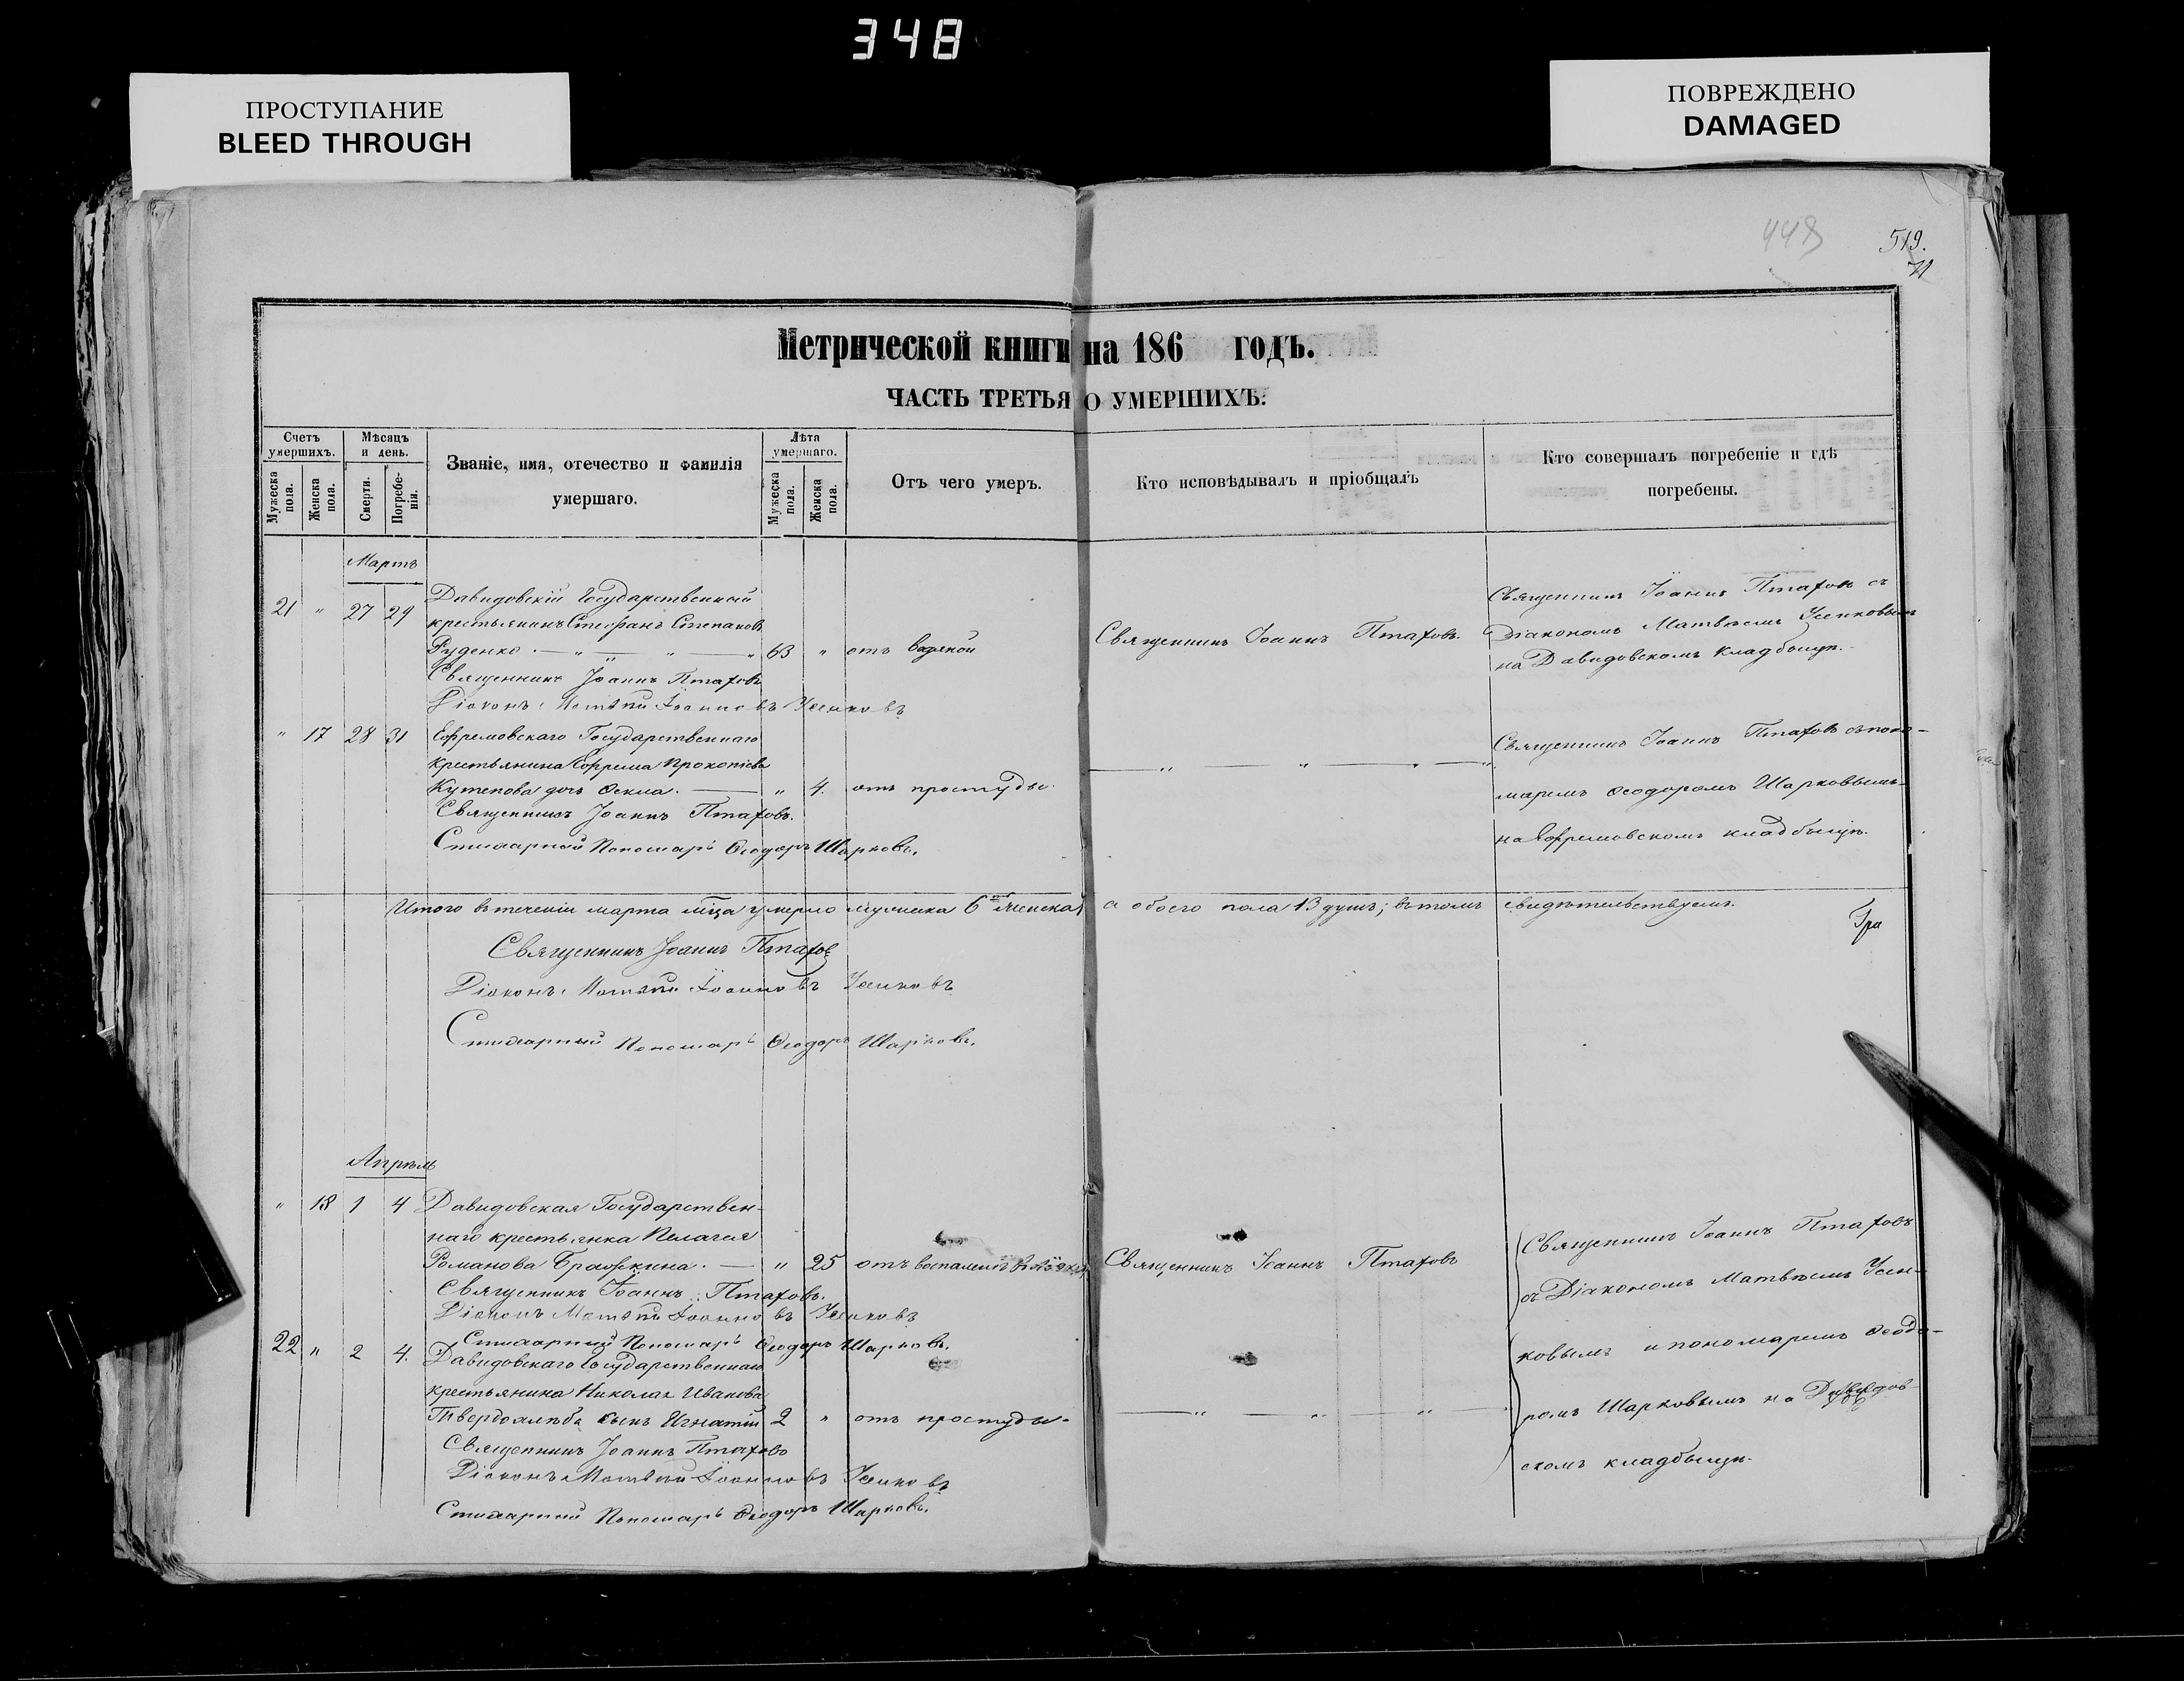 348
ПРОСТУПАНИЕ
BLEED THROUGH
ПОВРЕЖДЕНО
DAMAGED
448
519.
Метрической книги на 186 годъ.
ЧАСТЬ ТРЕТЬЯ О УМЕРШИХЪ.
Счетъ умершихъ.
Мужеска пола.
Женска пола.
Мѣсяцъ и день.
Смерти.
Погребенія.
Званіе, имя, отечество и фамилія
умершаго.
Лѣта умершаго.
Мужеска пола.
Женска пола.
Отъ чего умеръ.
Кто исповѣдывалъ и пріобщалъ
Кто совершалъ погребеніе и гдѣ
погребены.
Мартъ
21 " 27 29 Давидовскій Государственный
крестьянинъ Стефанъ Степановъ
Руденко 63 " отъ водяной
Священникъ Іоаннъ Птаховъ.
Священникъ Іоаннъ Птаховъ съ
Діакономъ Матвѣемъ Усенковымъ
на Давидовскомъ кладбищѣ.
Священникъ Іоаннъ Птаховъ
Діаконъ Матѳѣй Іоанновъ Усенковъ
" 17 28 31 Ефремовскаго Государственнаго
крестьянина Ефрема Прокопіева
Кутепова дочь Ѳекла. " 4. отъ простуды.
Священникъ Іоаннъ Птаховъ съ поно-
маремъ Ѳеодоромъ Шарковымъ
на Ефремовскомъ кладбищѣ.
Священникъ Іоаннъ Птаховъ.
Стихарный Пономарь Ѳеодоръ Шарковъ.
Итого въ теченіи марта мца умерло мужеска 6 женска а обоего пола 13 душъ; въ томъ свидѣтельствуемъ.
Гра
Священникъ Іоаннъ Птаховъ
Діаконъ Матѳѣй Іоанновъ Усенковъ
Стихарный Пономарь Ѳеодоръ Шарковъ.
Апрѣль
" 18 1 4 Давидовская Государствен-
наго крестьянка Пелагея
Романова Бражкина. " 25 отъ воспаленія
Священникъ Іоаннъ Птаховъ
Священникъ Іоаннъ Птаховъ
съ Діакономъ Матвѣемъ Усен-
ковымъ и пономаремъ Ѳеодо-
ромъ Шарковымъ на Давидов-
скомъ кладбищѣ.
Священникъ Іоаннъ Птаховъ.
Діаконъ Матѳѣй Іоанновъ Усенковъ
Стихарный Пономарь Ѳеодоръ Шарковъ.
22 " 2 4. Давидовскаго Государственнаго
крестьянина Николая Иванова
Твердохлѣба сынъ Игнатій 2 " отъ простуды.
Священникъ Іоаннъ Птаховъ
Діаконъ Матѳѣй Іоанновъ Усенковъ
Стихарный Пономарь Ѳеодоръ Шарковъ.